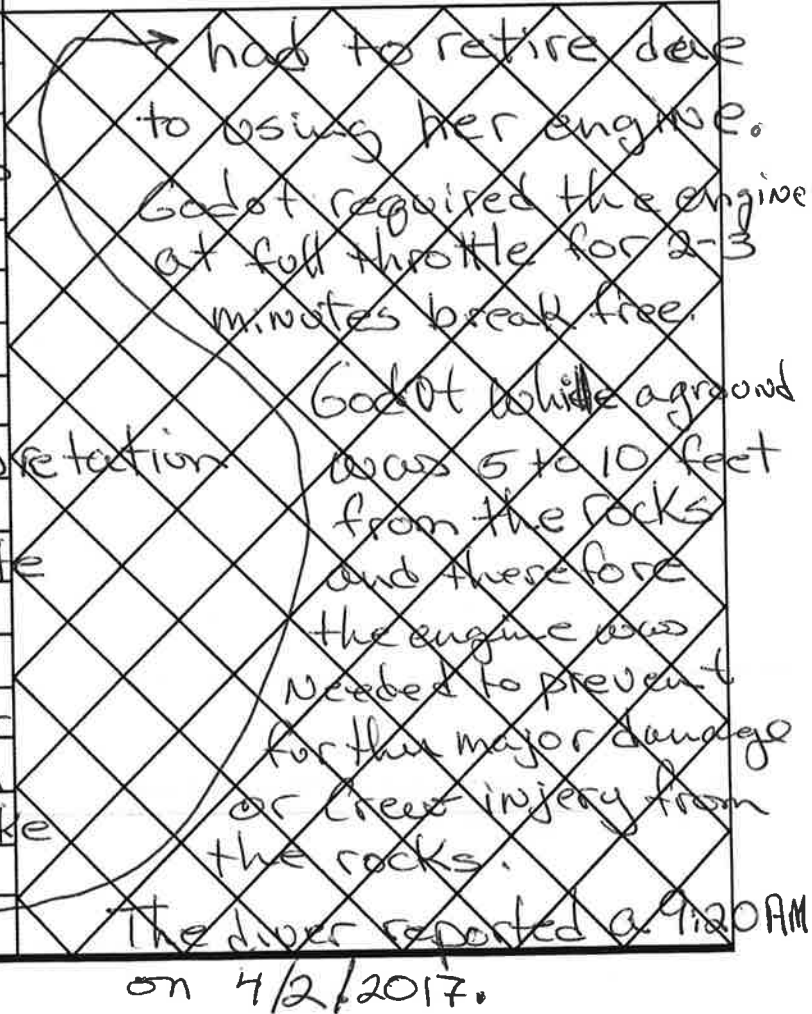 had to retire due
to using her engine.
Godot required the engine
at full throttle for 2-3
minutes break free.
Godot while aground
retation was 5 to 10 feet
from the rocks
te and therefore
the engine was
Needed to prevent
further major damage
or Crew injery from
ke the rocks.
The diver reported a 9:20 AM
on 4/2/2017.